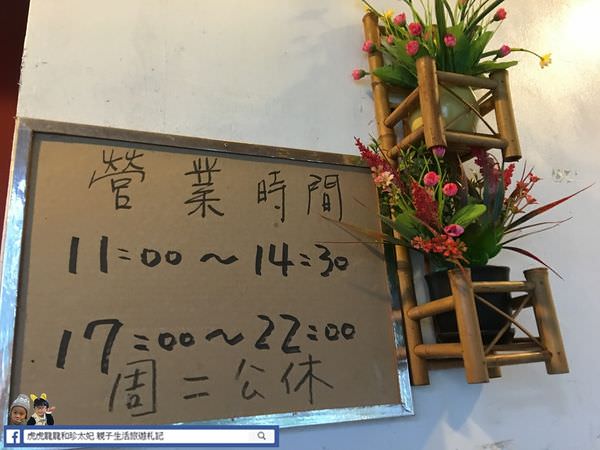 營業時間
11:00~14:30
17:00~22:00
周二公休
虎虎龍龍和珍太妃 親子生活旅遊札記